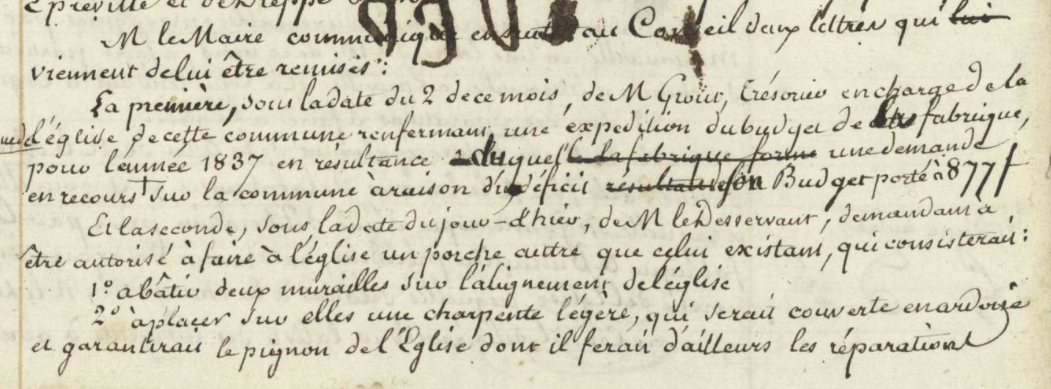 M le Maire communique ensuite au Conseil deux lettres qui lui
viennent de lui être remises :
La première, sous la date du 2 de ce mois, de M Grout, Trésorier en charge de la
d'église de cette commune renfermant, une expedition du budget de fabrique,
pour l'année 1837 en résultance duquel le la fabrique forme une demande
en recours sur la commune à raison du déficit résultant de son Budget porté à 877f
Et la seconde, sous la date du jour d'hier, de M le Desservant, demandant à
être autorisé à faire à l'église un porche autre que celui existant, qui consisterait :
1° a bâtir deux murailles sur l'alignement de l'église
2° à placer sur elles une charpente légère, qui serait couverte en ardoise
et garantirait le pignon de l'Eglise dont il ferait d'ailleurs les réparations